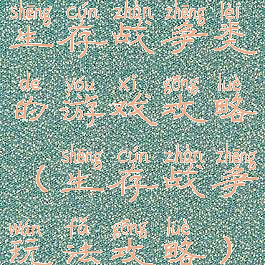 shēng cún zhàn zhēng lèi
生存战争类
de yóu xì gōng lüè
的游戏攻略
shēng cún zhàn zhēng
（生存战争
wán fǎ gōng lüè
玩法攻略）